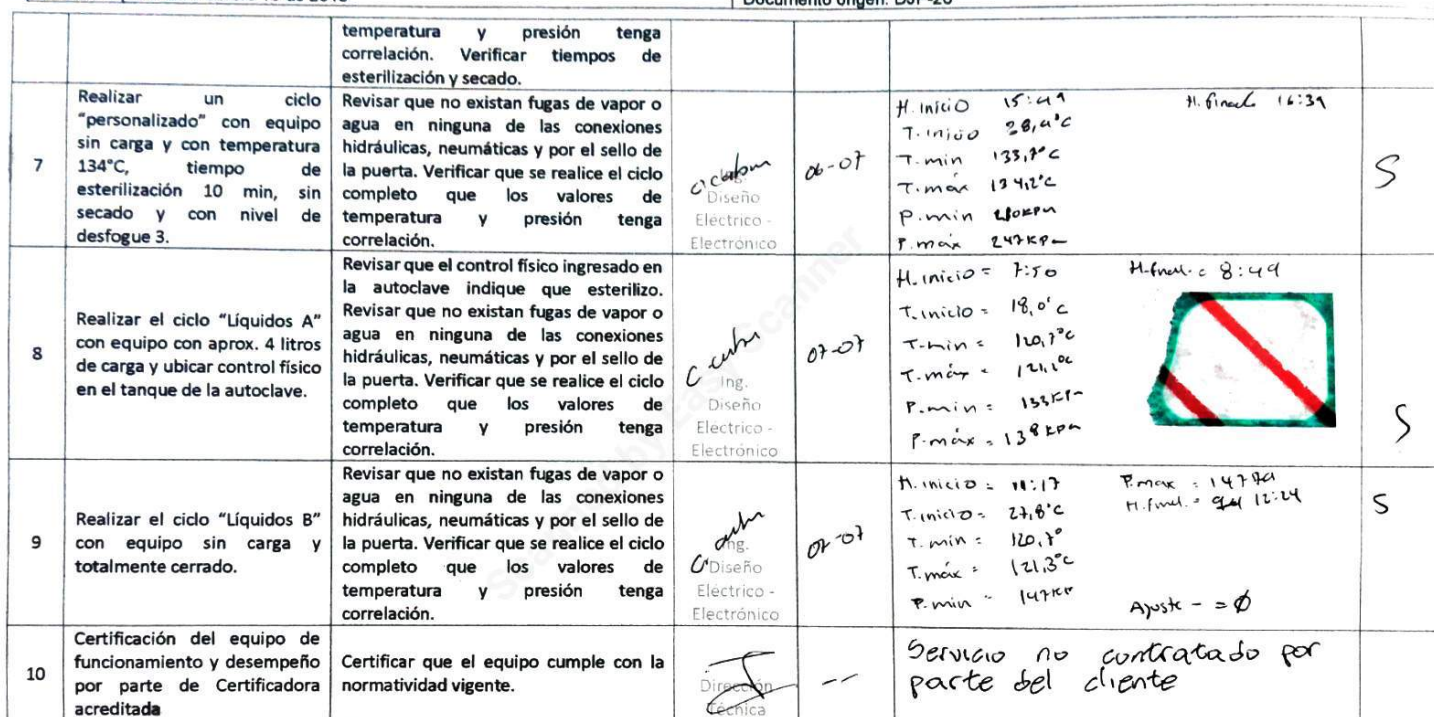 Documento origen: DJP-26
temperatura y presión tenga
correlación. Verificar tiempos de
esterilización y secado.
7
Realizar un ciclo
"personalizado" con equipo
sin carga y con temperatura
134°C, tiempo de
esterilización 10 min, sin
secado y con nivel de
desfogue 3.
Revisar que no existan fugas de vapor o
agua en ninguna de las conexiones
hidráulicas, neumáticas y por el sello de
la puerta. Verificar que se realice el ciclo
completo que los valores de
temperatura y presión tenga
correlación.
Ing.
Diseño
Eléctrico -
Electrónico
06-07
H. inicio 15:49
T. inicio 28,4°C
T. min 133,7°C
T. máx 134,2°C
P. min
P. máx 247 KPa
H. final 16:39
S
8
Realizar el ciclo "Líquidos A"
con equipo con aprox. 4 litros
de carga y ubicar control físico
en el tanque de la autoclave.
Revisar que el control físico ingresado en
la autoclave indique que esterilizo.
Revisar que no existan fugas de vapor o
agua en ninguna de las conexiones
hidráulicas, neumáticas y por el sello de
la puerta. Verificar que se realice el ciclo
completo que los valores de
temperatura y presión tenga
correlación.
Ing.
Diseño
Eléctrico -
Electrónico
07-07
H. inicio = 7:50
T. inicio = 18,0°C
T. min = 120,7°C
T. máx = 121,1°C
P. min = 133 KPa
P. máx = 138 KPa
H. final = 8:49
S
9
Realizar el ciclo "Líquidos B"
con equipo sin carga y
totalmente cerrado.
Revisar que no existan fugas de vapor o
agua en ninguna de las conexiones
hidráulicas, neumáticas y por el sello de
la puerta. Verificar que se realice el ciclo
completo que los valores de
temperatura y presión tenga
correlación.
Ing.
Diseño
Eléctrico -
Electrónico
07-07
H. inicio = 11:17
T. inicio = 27,8°C
T. min = 120,7°
T. máx = 121,3°C
P. min = 147 KP
P. max = 147
H. final = 12:24
Ajuste - = Ø
S
10
Certificación del equipo de
funcionamiento y desempeño
por parte de Certificadora
acreditada
Certificar que el equipo cumple con la
normatividad vigente.
Dirección
Técnica
--
Servicio no contratado por
parte del cliente
Scanned by Easy Scanner